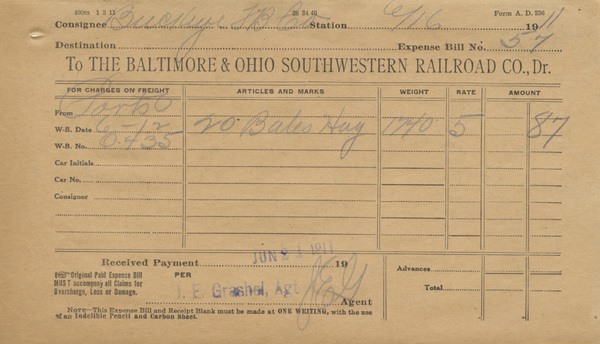 400m 1 3 11 28 84 40 Form A. D. 236
Consignee Buckeye Station 6/16 1911
Destination Expense Bill No. 57
To THE BALTIMORE & OHIO SOUTHWESTERN RAILROAD CO., Dr.
FOR CHARGES ON FREIGHT ARTICLES AND MARKS WEIGHT RATE AMOUNT
From
W-B. Date 6-12 20 Bales Hay 1740 5 87
W-B. No. 0435
Car Initials
Car No.
Consignor
Received Payment JUN 21 1911 19
Original Paid Expense Bill
MUST accompany all Claims for
Overcharge, Loss or Damage.
PER
I. E. Grashel, Agt
Agent
Advances
Total
NOTE—This Expense Bill and Receipt Blank must be made at ONE WRITING, with the use
of an Indelible Pencil and Carbon Sheet.